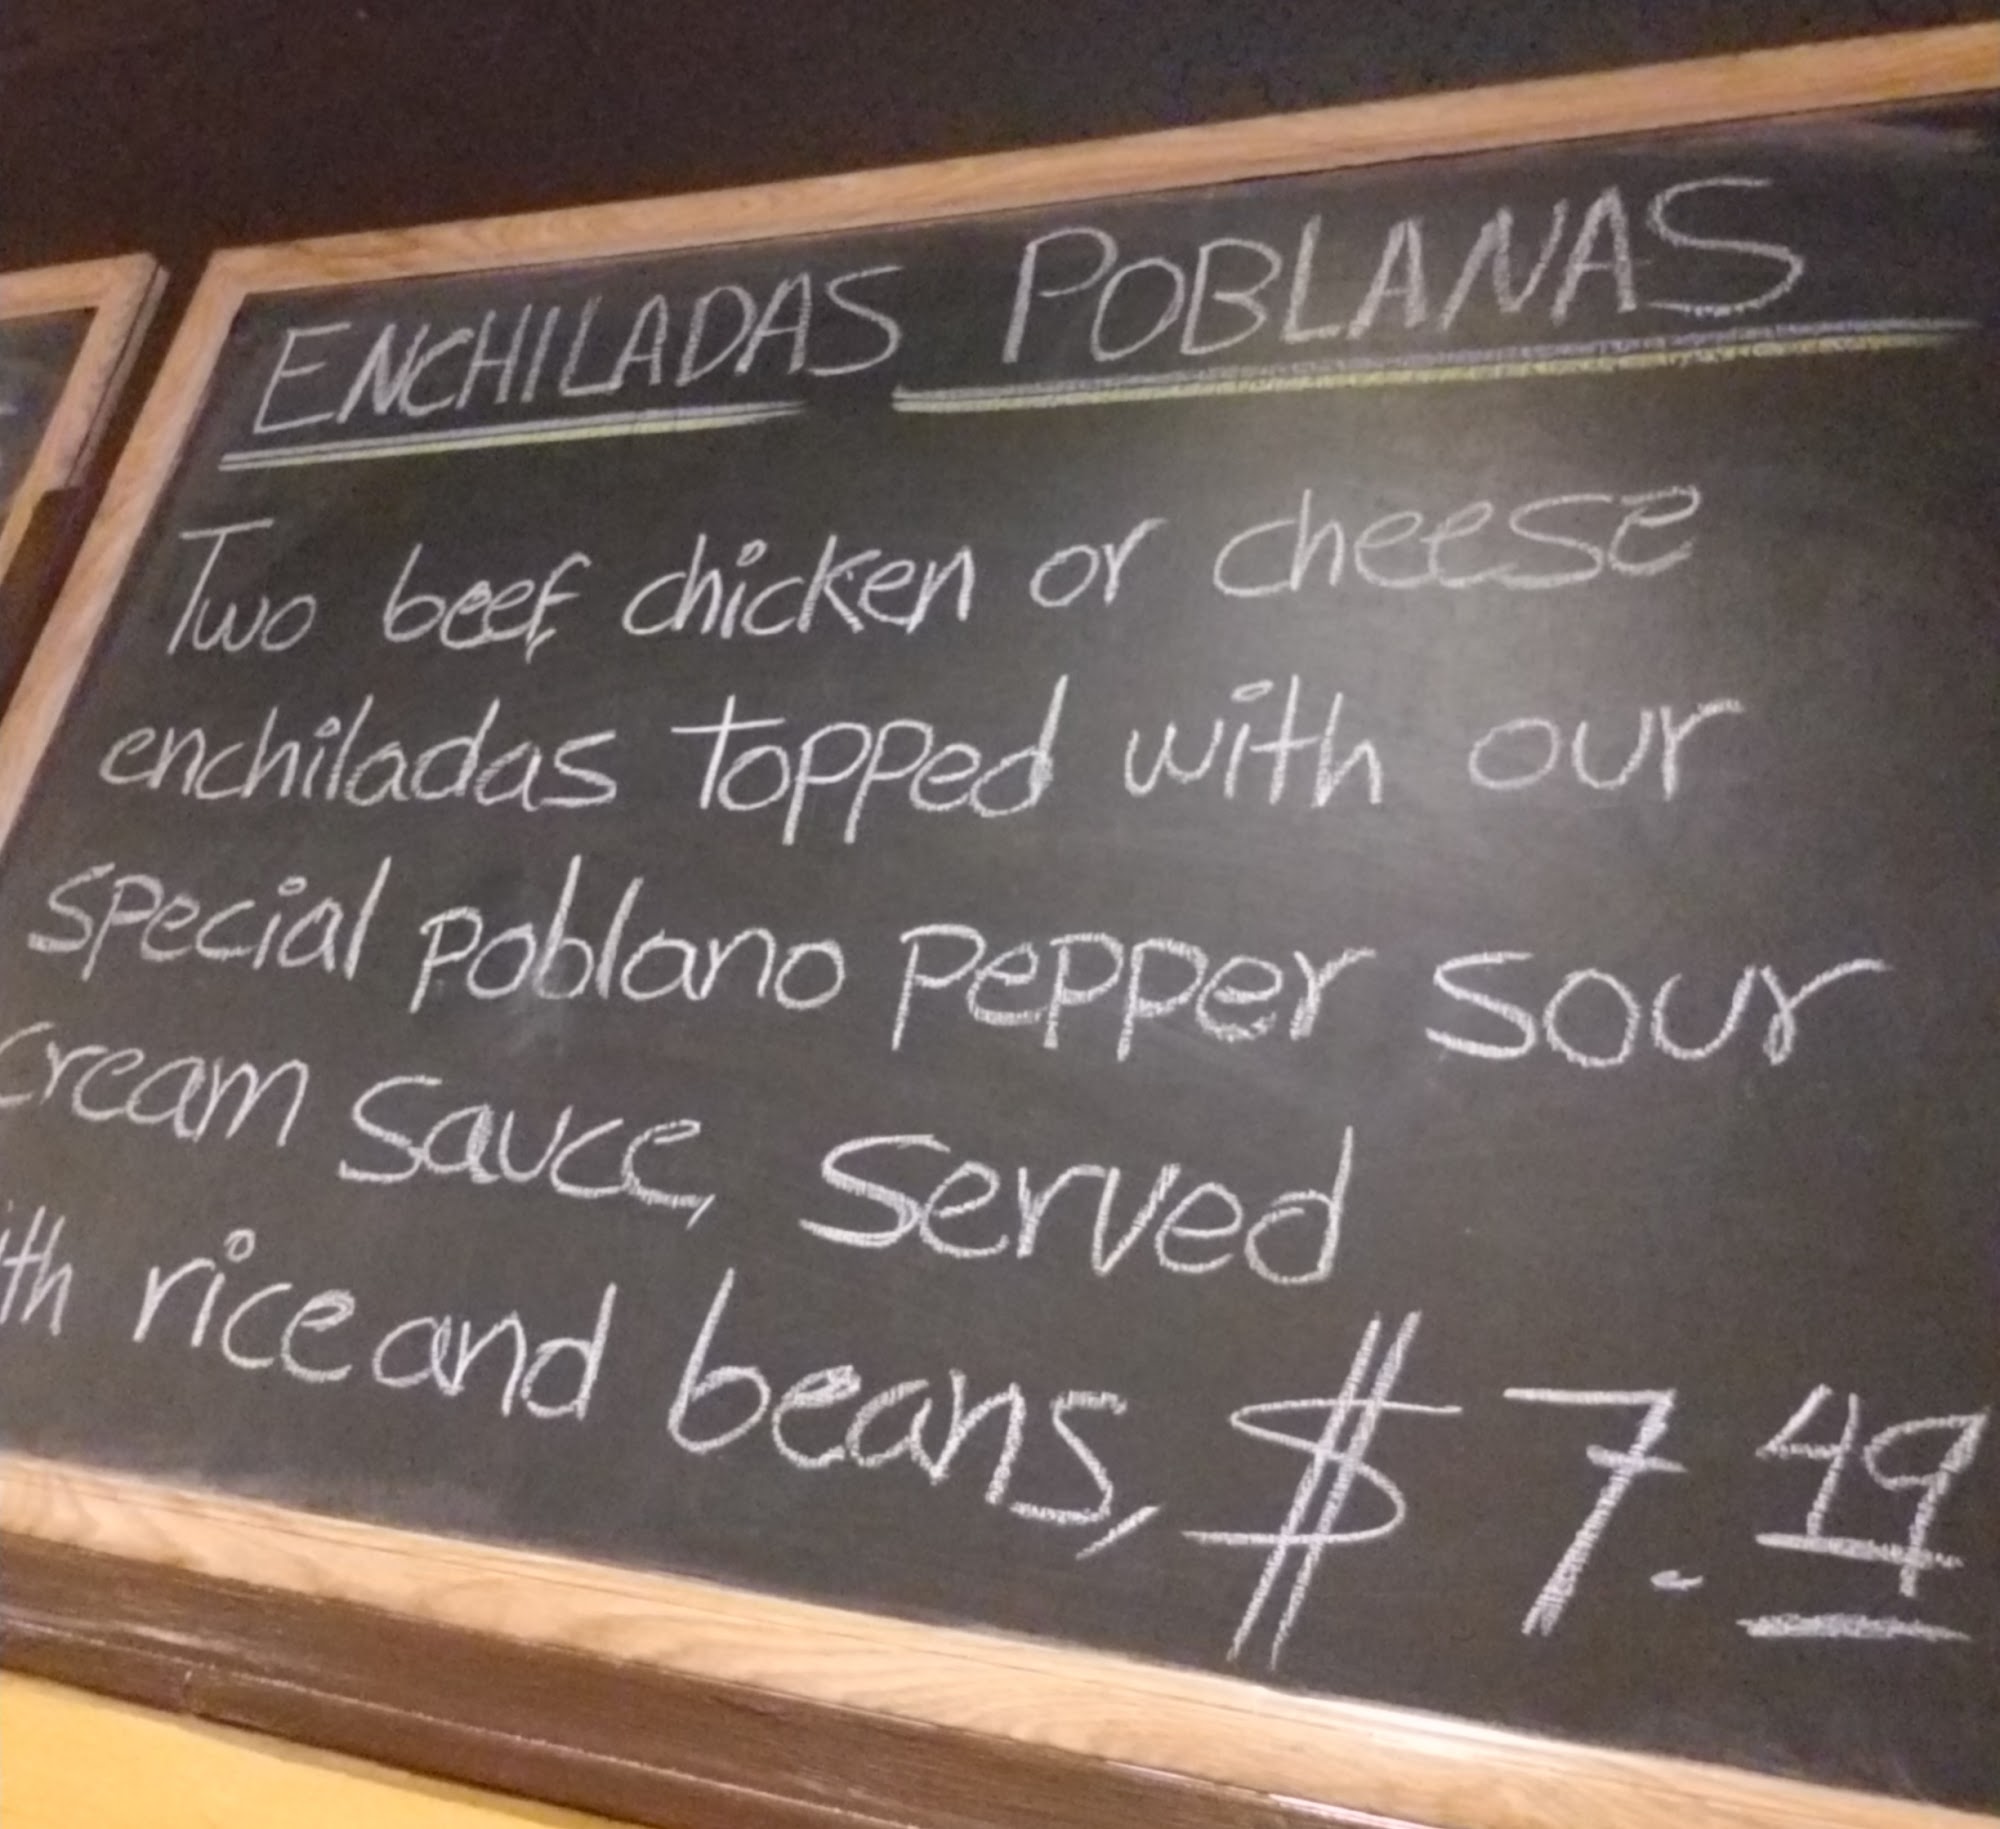 ENCHILADAS POBLANAS
Two beef, chicken or cheese
enchiladas topped with our
special poblano pepper sour
cream sauce, Served
ith rice and beans, $7.49